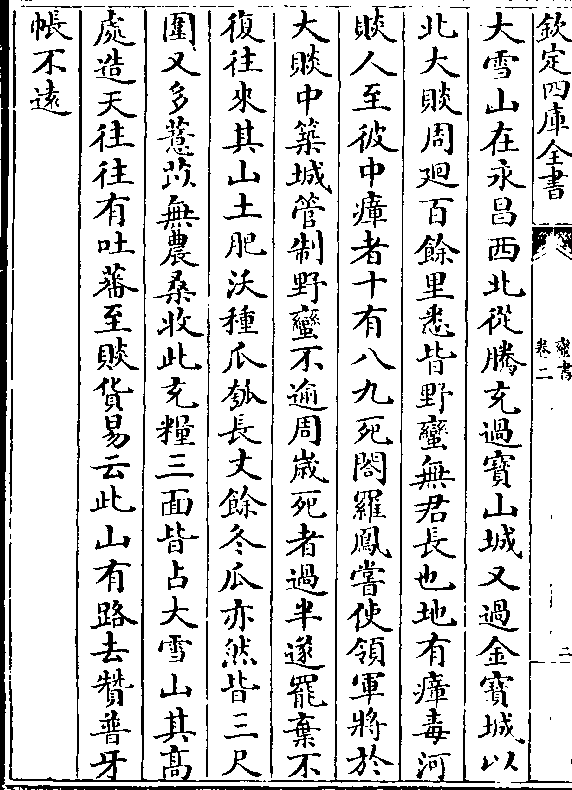 欽定四庫全書
蠻書
卷二
二
大雪山在永昌西北從騰充過寶山城又過金寶城以
北大賧周廻百餘里悉皆野蠻無君長也地有瘴毒河
賧人至彼中瘴者十有八九死閣羅鳳嘗使領軍將於
大賧中築城管制野蠻不逾周歲死者過半遂罷棄不
復往來其山土肥沃種瓜瓠長丈餘冬瓜亦然皆三尺
圍又多薏苡無農桑收此充糧三面皆占大雪山其高
處造天往往有吐蕃至賧貨易云此山有路去贊普牙
帳不遠